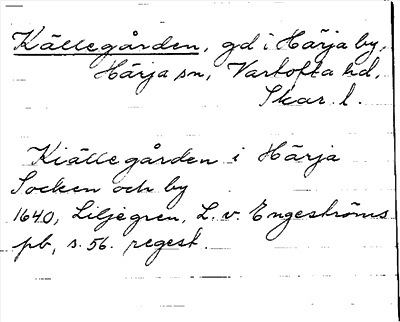 Källegården, gd i Härja by,
Härja sn, Vartofta hd,
Skar. l.
Kiällegården i Härja
Socken och by
1640, Liljegren, L. v. Engeströms
pb, s. 56. regest.